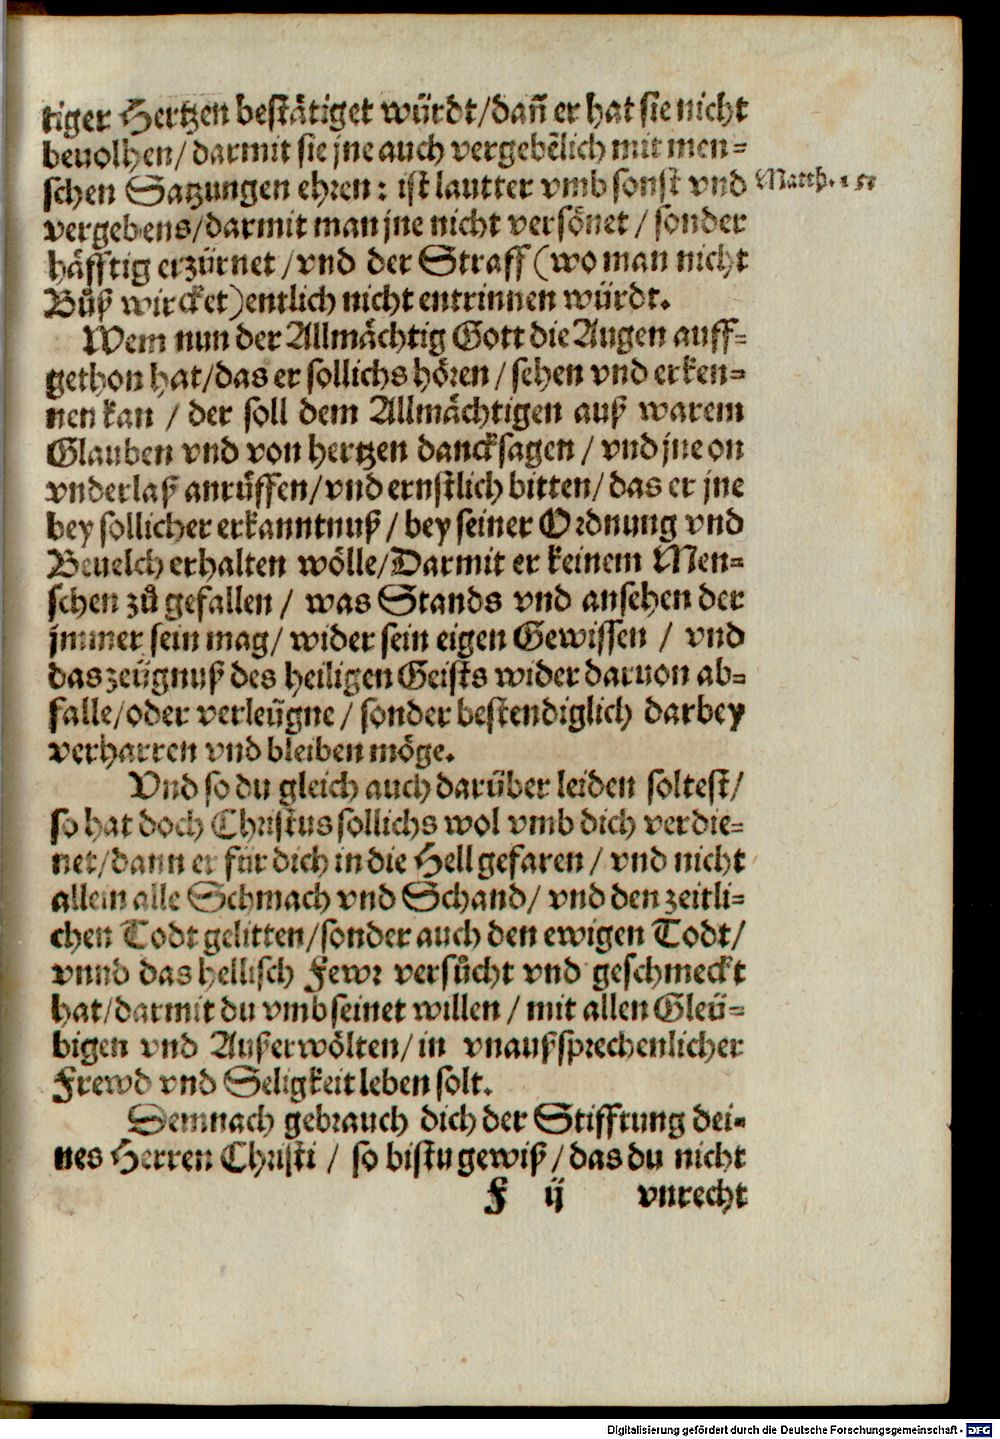 tiger Hertzen bestätiget würdt/dañ er hat sie nicht
beuolhen/ darmit sie jne auch vergebẽlich mit men=
schen Satzungen ehren: ist lautter vmb sonst vnd
Matth. 15
vergebens/darmit man jne nicht versönet / sonder
häfftig erzürnet /vnd der Straff (wo man nicht
Bůß wircket)entlich nicht entrinnen würdt.
Wem nun der Allmächtig Gott die Augen auff=
gethon hat/das er sollichs hören / sehen vnd erken=
nen kan / der soll dem Allmächtigen auß warem
Glauben vnd von hertzen dancksagen / vnd jne on
vnderlaß anrůffen/vnd ernstlich bitten/ das er jne
bey sollicher erkanntnuß / bey seiner Ordnung vnd
Beuelch erhalten wölle/Darmit er keinem Men=
schen zů gefallen / was Stands vnd ansehen der
jmmer sein mag/ wider sein eigen Gewissen / vnd
das zeügnuß des heiligen Geists wider daruon ab=
falle/oder verleügne / sonder bestendiglich darbey
verharren vnd bleiben möge.
Vnd so du gleich auch darüber leiden soltest/
so hat doch Christus sollichs wol vmb dich verdie=
net/dann er für dich in die Hell gefaren / vnd nicht
allein alle Schmach vnd Schand/ vnd den zeitli=
chen Todt gelitten/sonder auch den ewigen Todt/
vnnd das hellisch Fewr versůcht vnd geschmeckt
hat/darmit du vmb seinet willen / mit allen Gleü=
bigen vnd Außerwölten/in vnaußsprechenlicher
Frewd vnd Seligkeit leben solt.
Demnach gebrauch dich der Stifftung dei=
nes Herren Christi / so bistu gewiß/das du nicht
F ij vnrecht
Digitalisierung gefördert durch die Deutsche Forschungsgemeinschaft - DFG